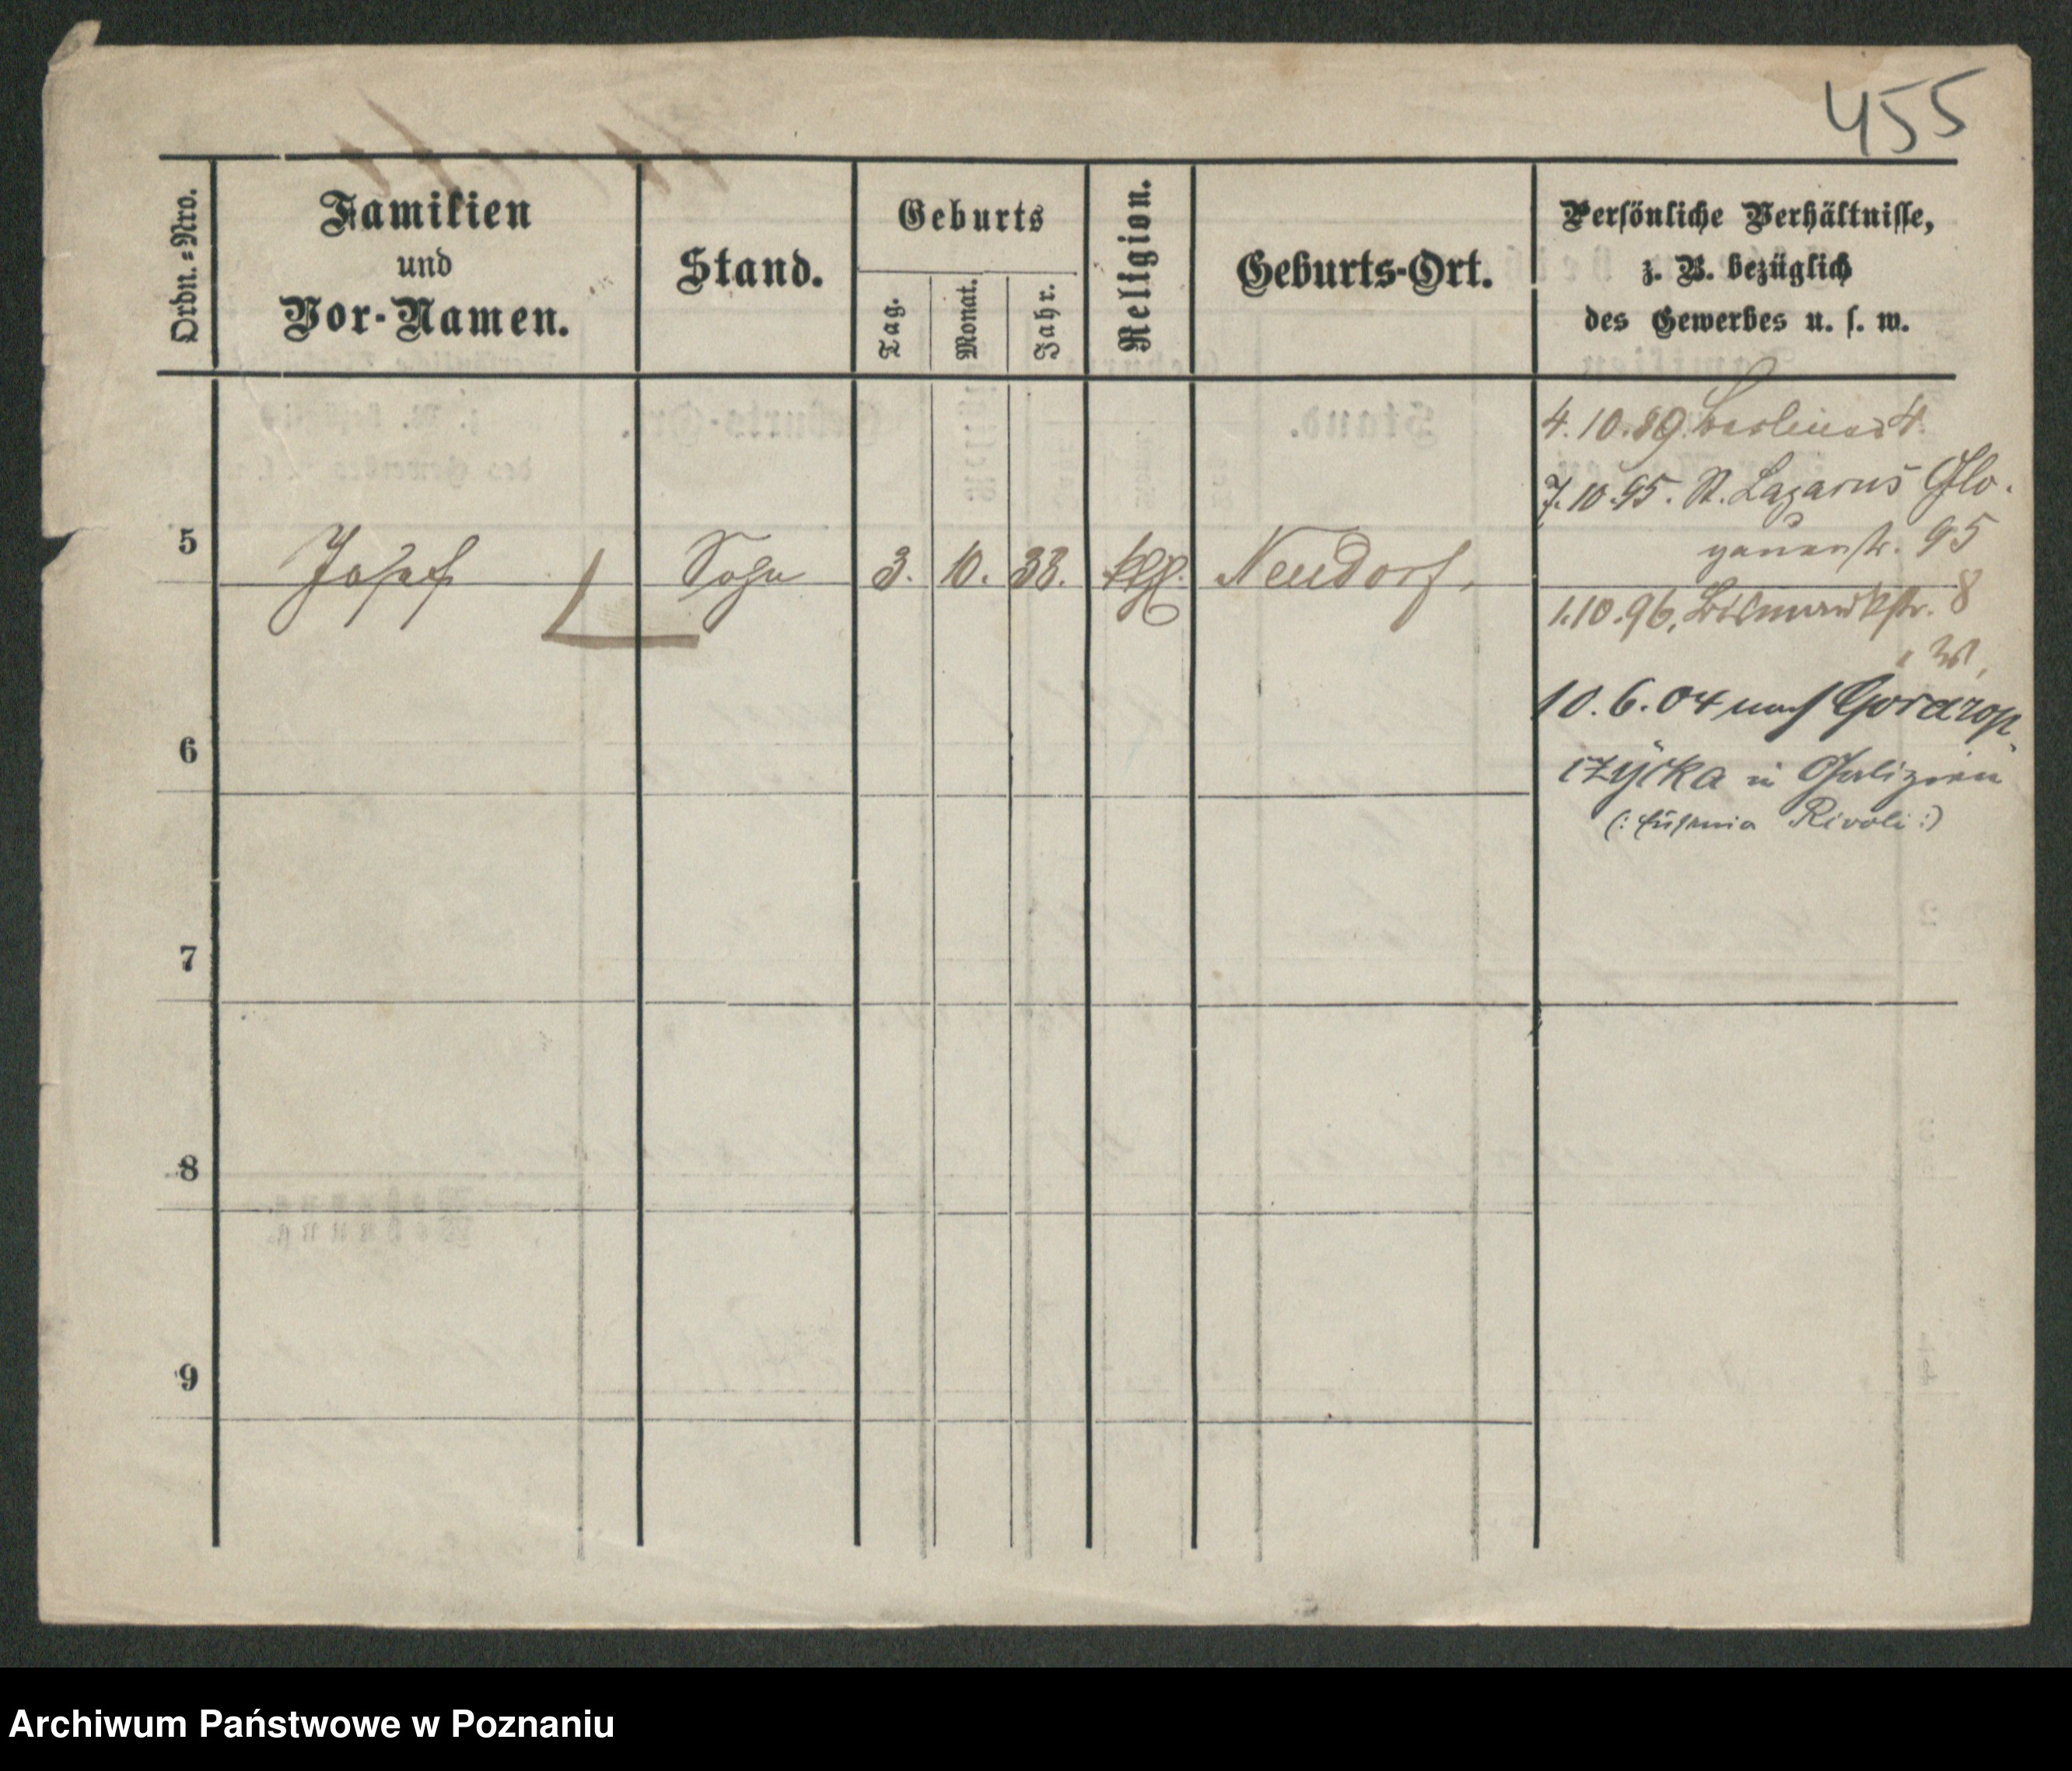 455
Ordn.=Nro.
Familien
und
Vor-Namen.
Stand.
Geburts
Tag.
Monat.
Jahr.
Religion.
Geburts-Ort.
Persönliche Verhältnisse,
z. B. bezüglich
des Gewerbes u. s. w.
4.10.89. 4.
7.10.95. St. Lazarus Glo-
gauerstr. 95
5 Josef Sohn 3. 10. 88. kth. Neudorf.
1.10.96. Bismarckstr. 8
10.6.04 nach
in Galizien
(: Rivoli :)
6
7
8
9
Archiwum Państwowe w Poznaniu